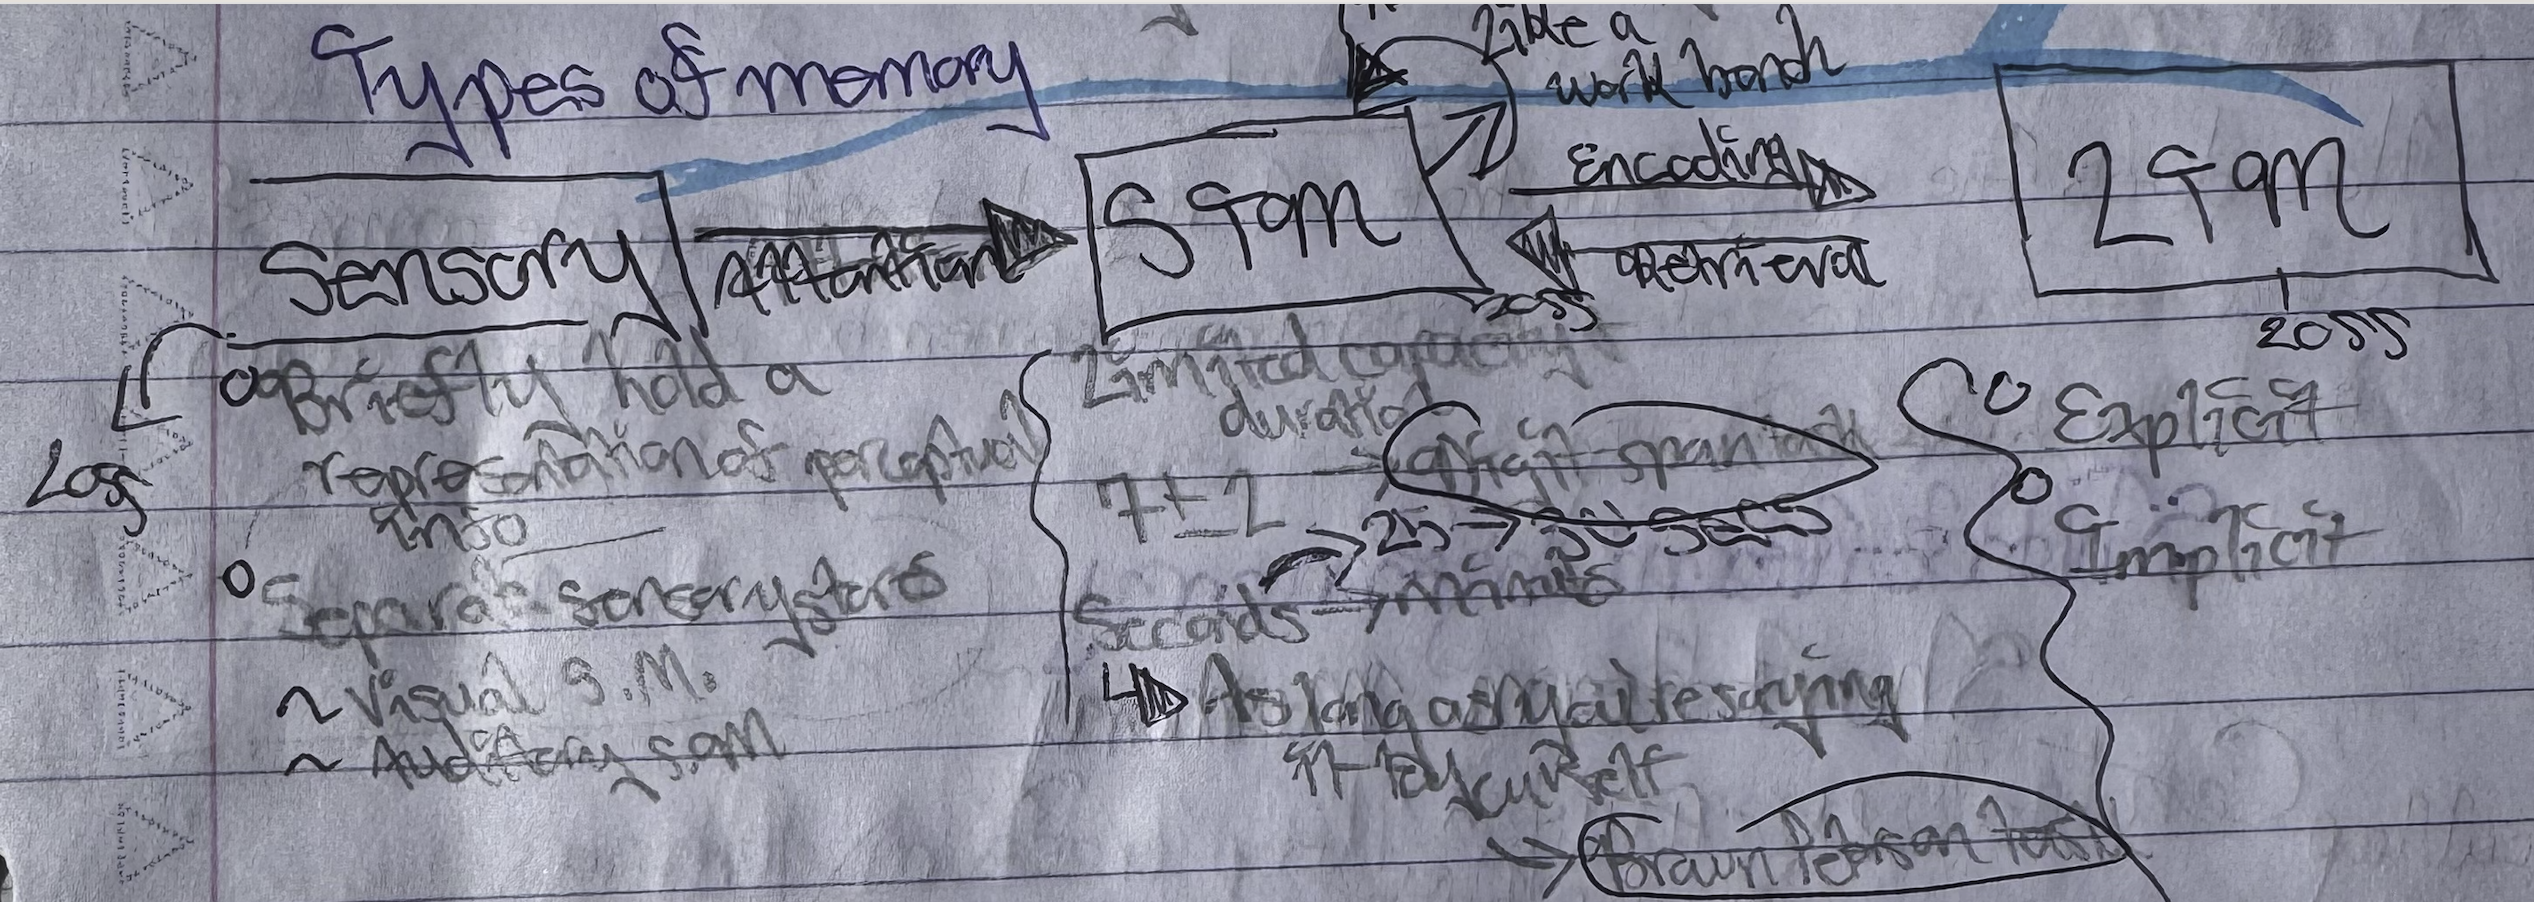 Types of memory
Like a
work bench
Sensory
Attention
STM
Encoding
Retrieval
LTM
Loss
Loss
Loss
Briefly hold a
representation of perceptual
info
Separate sensory stores
~ Visual S.M.
~ Auditory S.M
Limited capacity
duration
7±2 → digit span task
25 → 30 secs
Seconds → minutes
As long as you're saying
it to yourself
→ Brown Peterson task
Explicit
Implicit